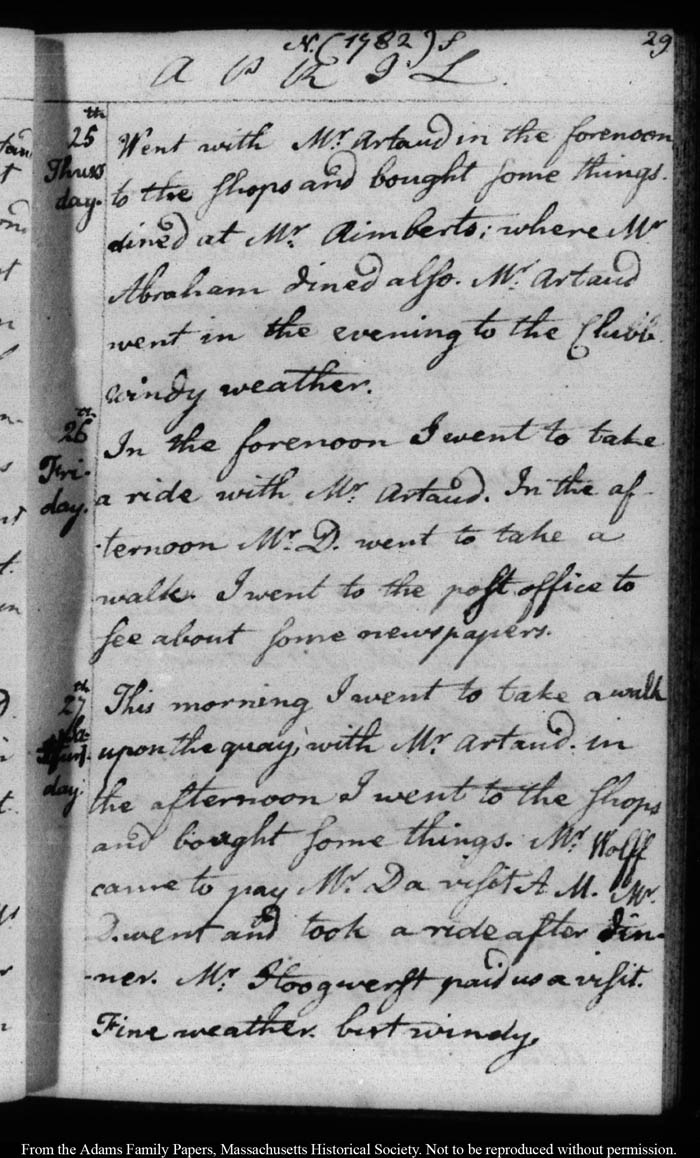 N. (1782) S 29
APRIL.
25th Thursday.
Went with Mr. Artaud in the forenoon
to the shops and bought some things.
dined at Mr. Rimberts; where Mr
Abraham dined also. Mr. Artaud
went in the evening to the Clubb
windy weather.
26th Friday.
In the forenoon I went to take
a ride with Mr. Artaud. In the af-
ternoon Mr. D. went to take a
walk. I went to the post office to
see about some newspapers.
27th
day.
This morning I went to take a walk
upon the quay, with Mr. Artaud. in
the afternoon I went to the shops
and bought some things. Mr. Wolff
came to pay Mr. D a visit A M. Mr.
D. went and took a ride after din-
-ner. Mr. Hoogwerft paid us a visit.
Fine weather. but windy.
From the Adams Family Papers, Massachusetts Historical Society. Not to be reproduced without permission.